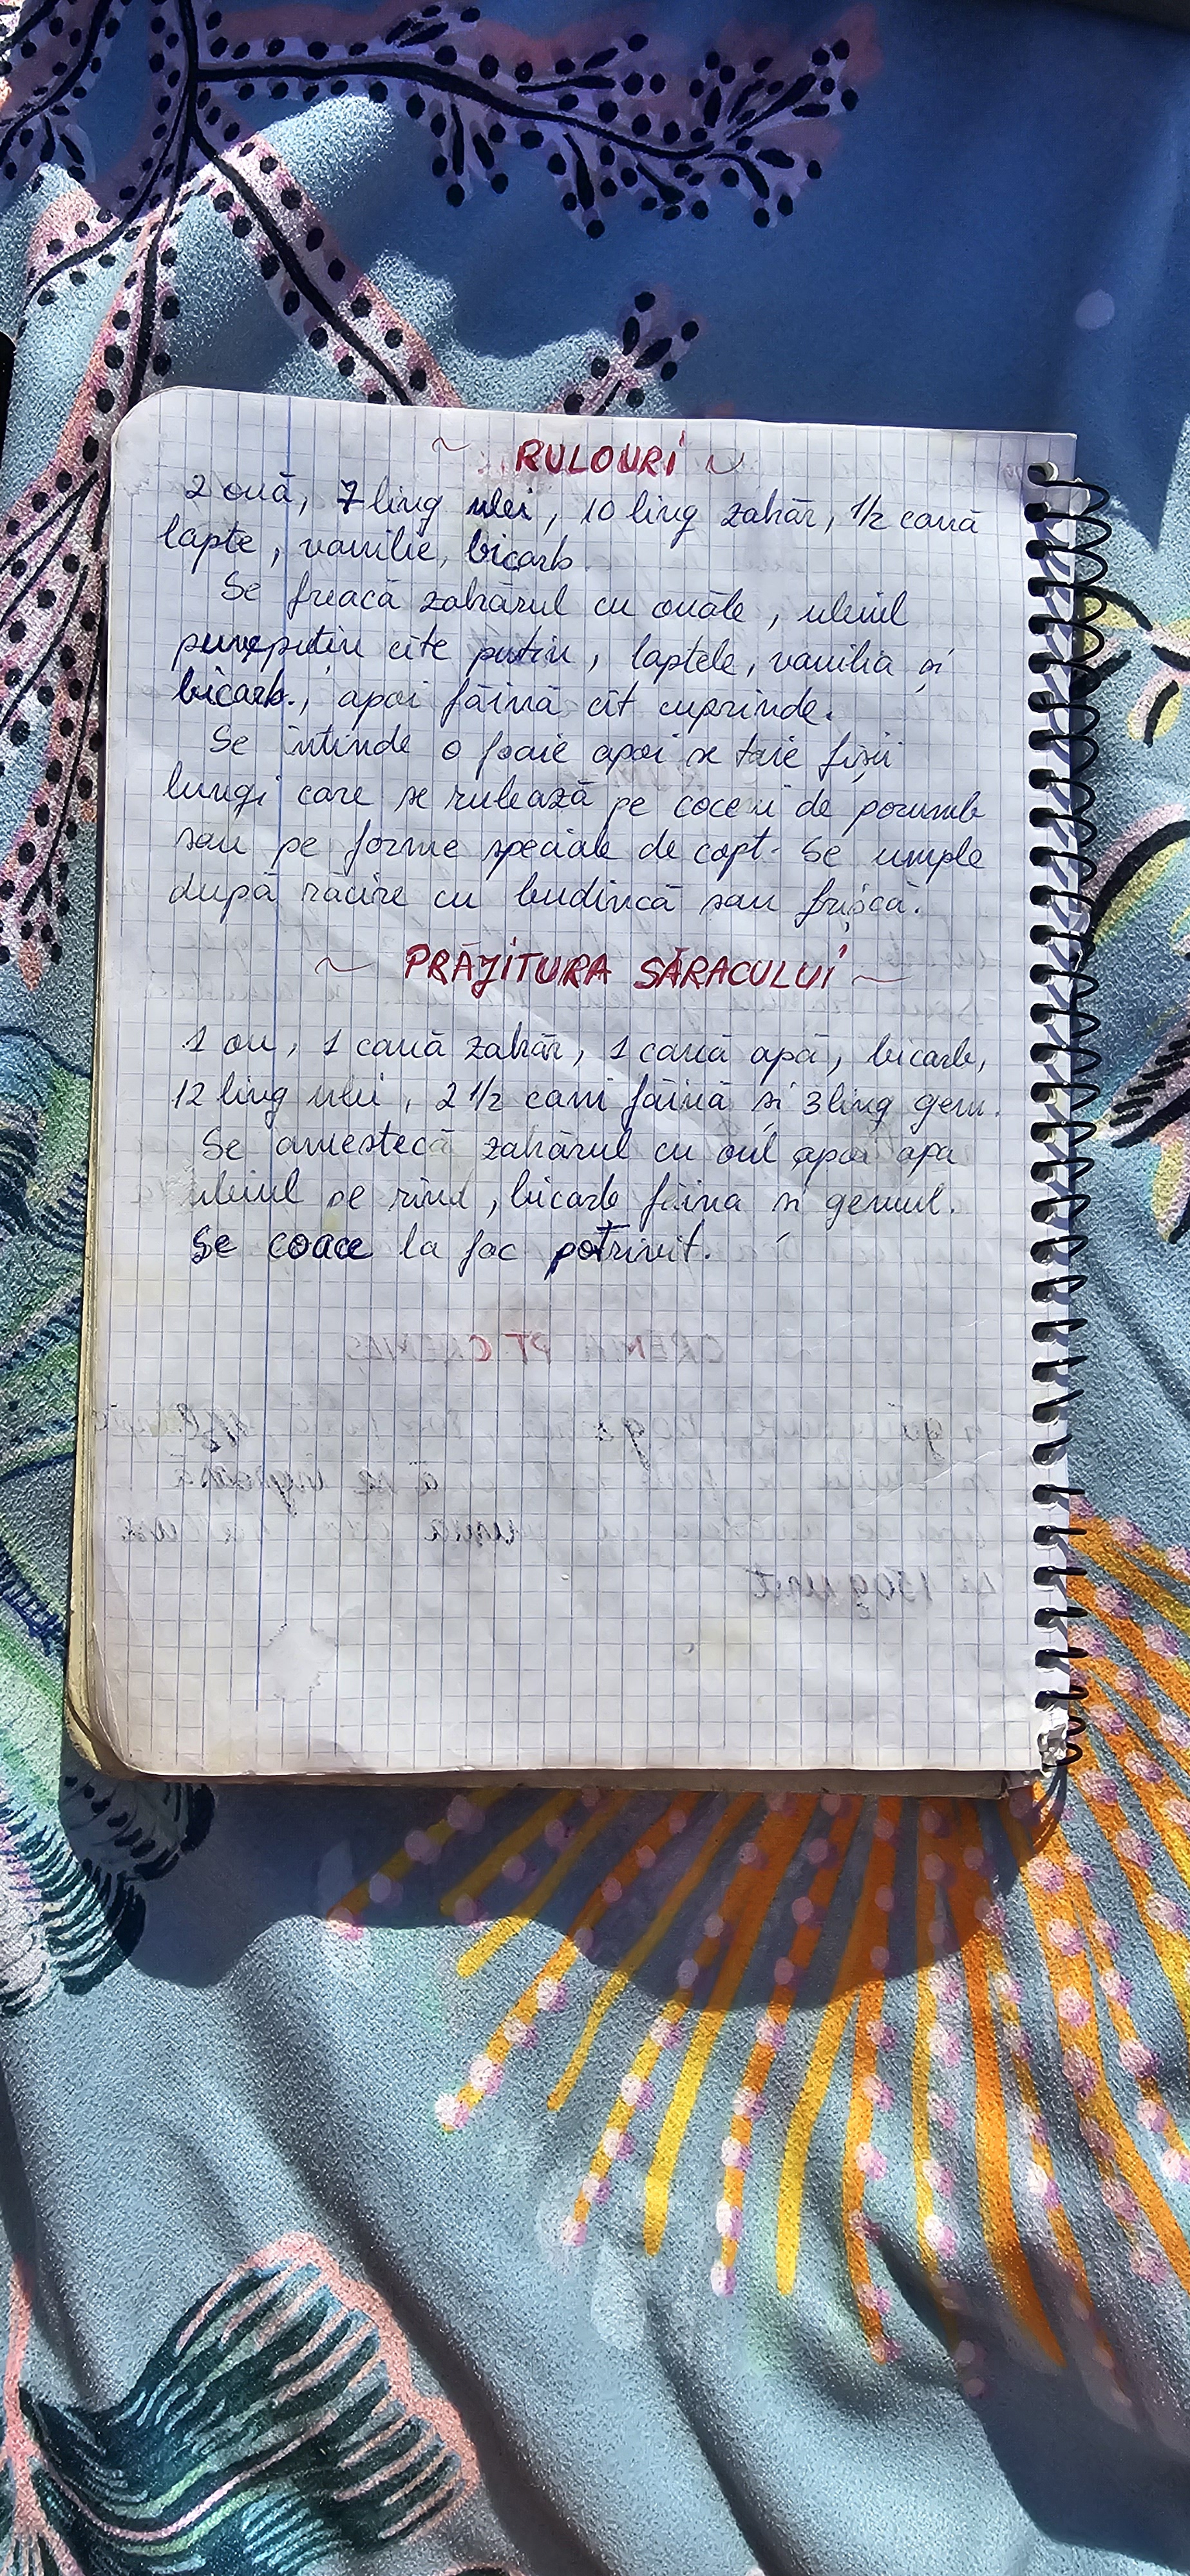 ~ RULOURI ~
2 ouă, 7 ling ulei, 10 ling zahăr, 1/2 cană
lapte, vanilie, bicarb.
Se freacă zahărul cu ouăle, uleiul
puțin cîte puțin, laptele, vanilia și
bicarb., apoi făină cît cuprinde.
Se întinde o foaie apoi se taie fîșii
lungi care se rulează pe coceni de porumb
sau pe forme speciale de copt. Se umple
după răcire cu budincă sau frișcă.
~ PRĂJITURA SĂRACULUI ~
1 ou, 1 cană zahăr, 1 cană apă, bicarb,
12 ling ulei, 2 1/2 cani făină și 3 ling gem.
Se amestecă zahărul cu oul apoi apa
uleiul pe rînd, bicarb făina și gemul.
Se coace la foc potrivit.
CREMĂ PT CREMEȘ
130g unt